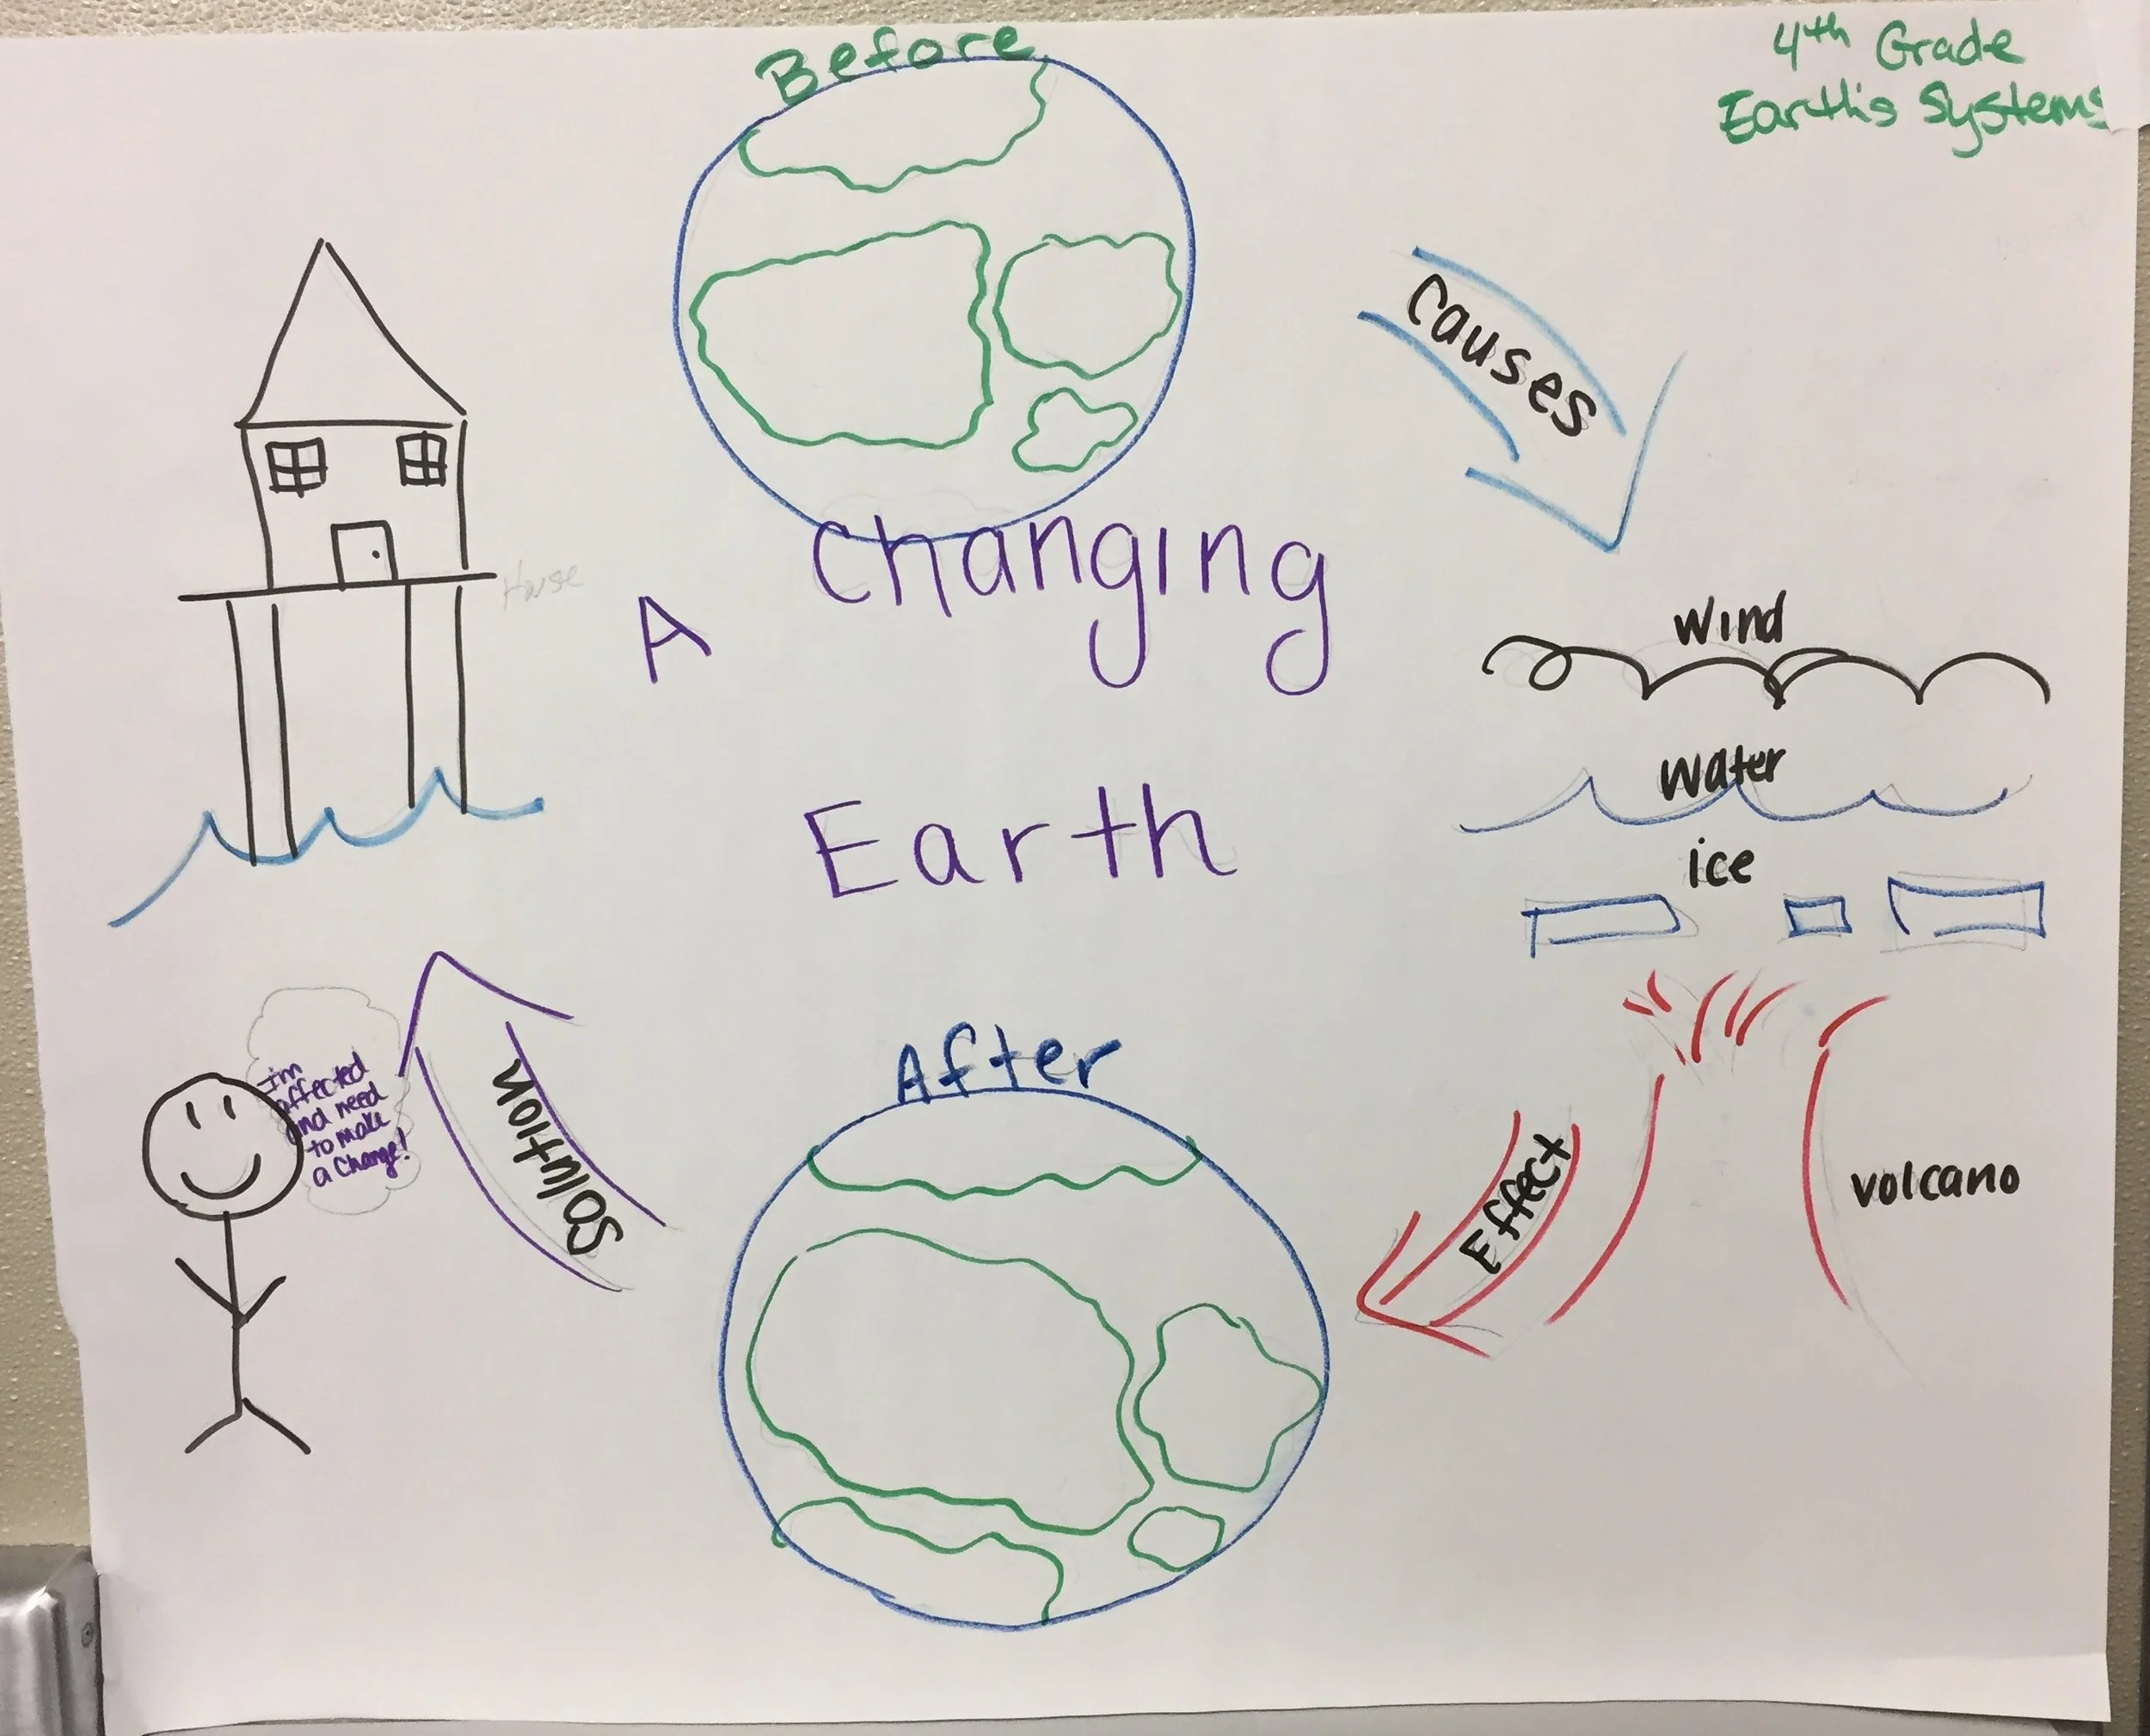 Before
4th Grade
Earth's Systems
causes
House
A Changing
Earth
wind
water
ice
volcano
Effect
After
Solution
I'm
affected
and need
to make
a change!